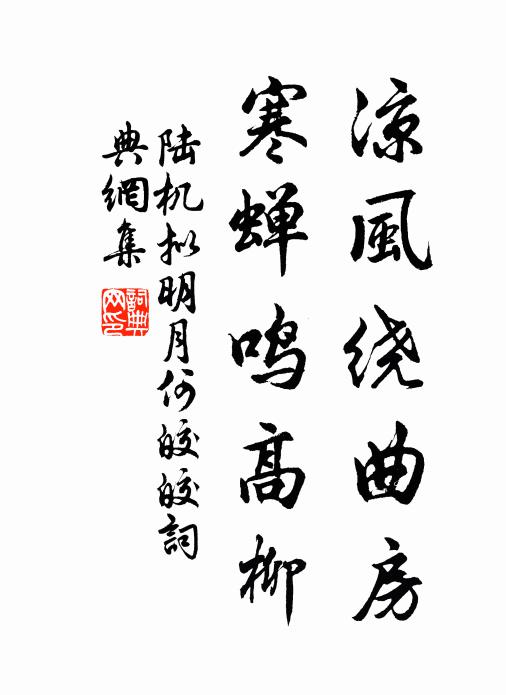 凉風绕曲房
寒蝉鸣高柳
陆机拟明月何皎皎詞
典網集
詞典網印